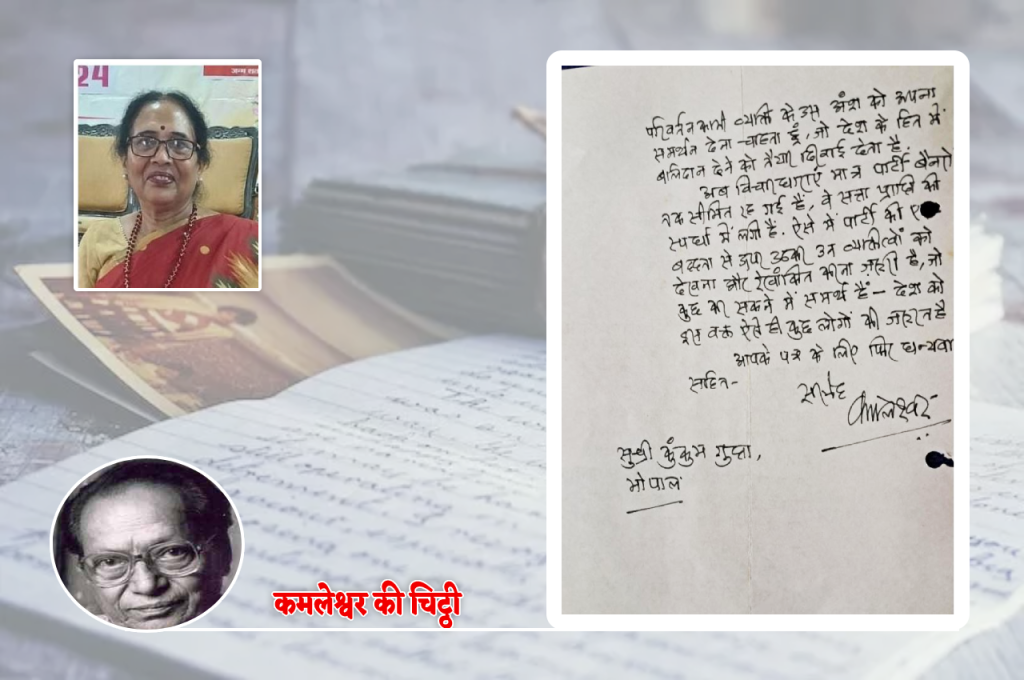 24
परिवर्तनकामी व्यक्ति के उस अंश को अपना
समर्थन देना चाहता हूँ, जो देश के हित में
बलिदान देने को तैयार दिखाई देता है.
अब विचारधाराएँ मात्र पार्टी बैनरों
तक सीमित रह गई हैं, वे सत्ता प्राप्ति की
स्पर्धा में लगी हैं. ऐसे में पार्टी की
बद्धता से ऊपर उठकर उन व्यक्तित्वों को
देखना और रेखांकित करना ज़रूरी है, जो
कुछ कर सकने में समर्थ हैं - देश को
इस वक्त ऐसे ही कुछ लोगों की जरूरत है
आपके पत्र के लिए फिर धन्यवा
सहित-
सस्नेह
कमलेश्वर
सुश्री कुंकुम गुप्ता,
भोपाल
कमलेश्वर की चिट्ठी